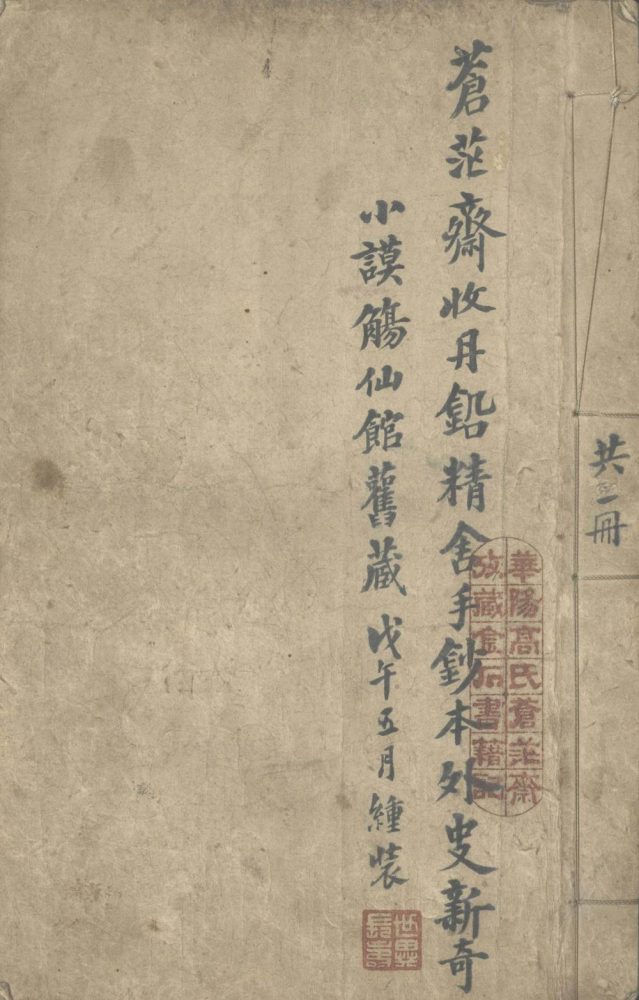 共冊
蒼茫齋收丹鉛精舍手鈔本外史新奇
華陽高氏蒼茫齋
攷藏金石書籍記
小謨觴仙館舊藏 戊午五月緟裝